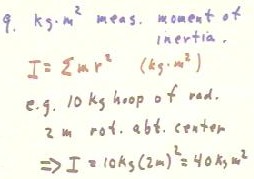 9. kg·m² meas. moment of
inertia.
I = Σmr² (kg·m²)
e.g. 10 kg hoop of rad.
2 m rot. abt. center
⇒ I = 10kg(2m)² = 40kg m²